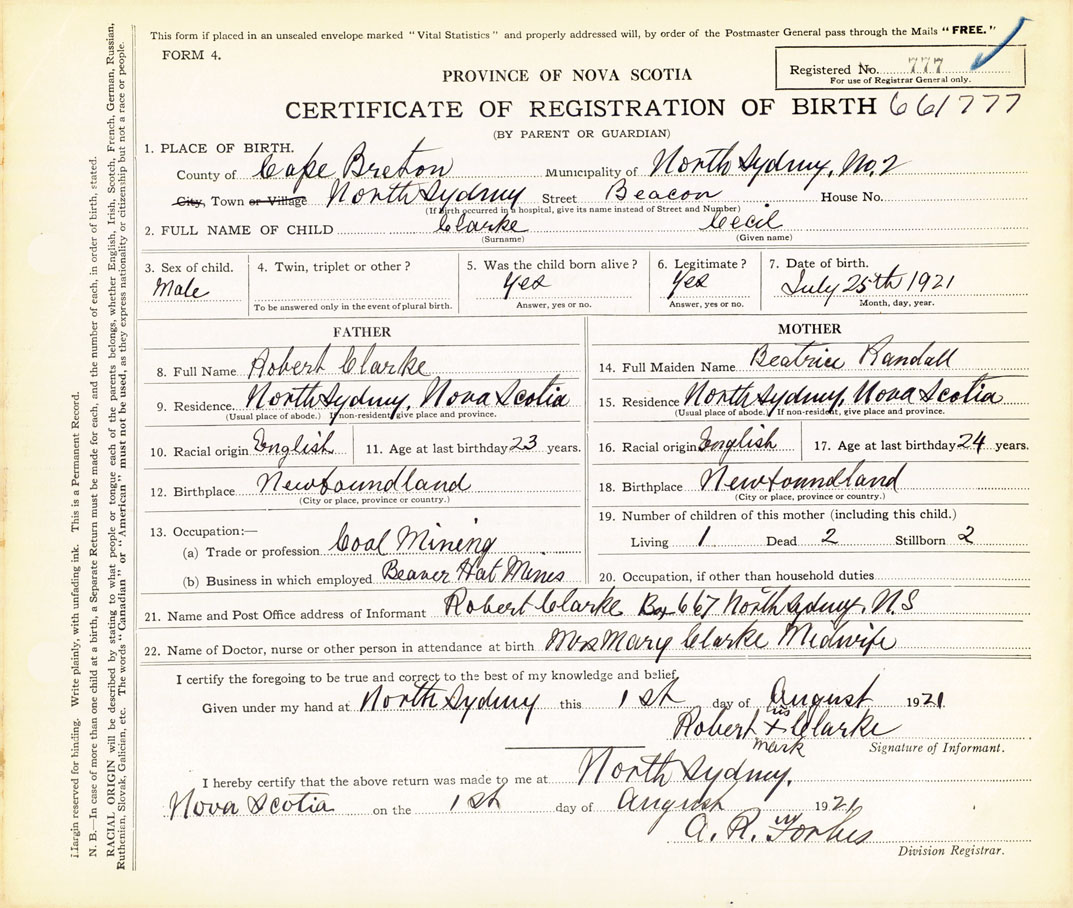 This form if placed in an unsealed envelope marked "Vital Statistics" and properly addressed will, by order of the Postmaster General pass through the Mails "FREE."
FORM 4.
Registered No. 777
For use of Registrar General only.
PROVINCE OF NOVA SCOTIA
CERTIFICATE OF REGISTRATION OF BIRTH 661777
(BY PARENT OR GUARDIAN)
1. PLACE OF BIRTH.
County of Cape Breton Municipality of North Sydney, No. 2
City, Town or Village North Sydney Street Beacon House No.
(If birth occurred in a hospital, give its name instead of Street and Number)
2. FULL NAME OF CHILD Clarke Cecil
(Surname) (Given name)
3. Sex of child. 4. Twin, triplet or other? 5. Was the child born alive? 6. Legitimate? 7. Date of birth.
Male Yes Yes July 25th 1921
To be answered only in the event of plural birth. Answer, yes or no. Answer, yes or no. Month, day, year.
FATHER
8. Full Name Robert Clarke
9. Residence. North Sydney, Nova Scotia
(Usual place of abode.) If non-resident, give place and province.
10. Racial origin English 11. Age at last birthday 23 years.
12. Birthplace Newfoundland
(City or place, province or country.)
13. Occupation:—
(a) Trade or profession Coal Mining
(b) Business in which employed Beaver Hat Mines
MOTHER
14. Full Maiden Name Beatrice Randall
15. Residence North Sydney, Nova Scotia
(Usual place of abode.) If non-resident, give place and province.
16. Racial origin English 17. Age at last birthday 24 years.
18. Birthplace Newfoundland
(City or place, province or country.)
19. Number of children of this mother (including this child.)
Living 1 Dead 2 Stillborn 2
20. Occupation, if other than household duties
21. Name and Post Office address of Informant Robert Clarke Box 667 North Sydney, N.S
22. Name of Doctor, nurse or other person in attendance at birth Mrs Mary Clarke Midwife
I certify the foregoing to be true and correct to the best of my knowledge and belief.
Given under my hand at North Sydney this 1st day of August 1921
his
Robert X Clarke
mark
Signature of Informant.
I hereby certify that the above return was made to me at North Sydney,
Nova Scotia on the 1st day of August 1921
A. R. Forbes
Division Registrar.
Margin reserved for binding. Write plainly, with unfading ink. This is a Permanent Record.
N. B.—In case of more than one child at a birth, a Separate Return must be made for each, and the number of each, in order of birth, stated.
RACIAL ORIGIN will be described by stating to what people or tongue each of the parents belongs, whether English, Irish, Scotch, French, German, Russian,
Ruthenian, Slovak, Galician, etc. The words "Canadian" or "American" must not be used, as they express nationality or citizenship but not a race or people.